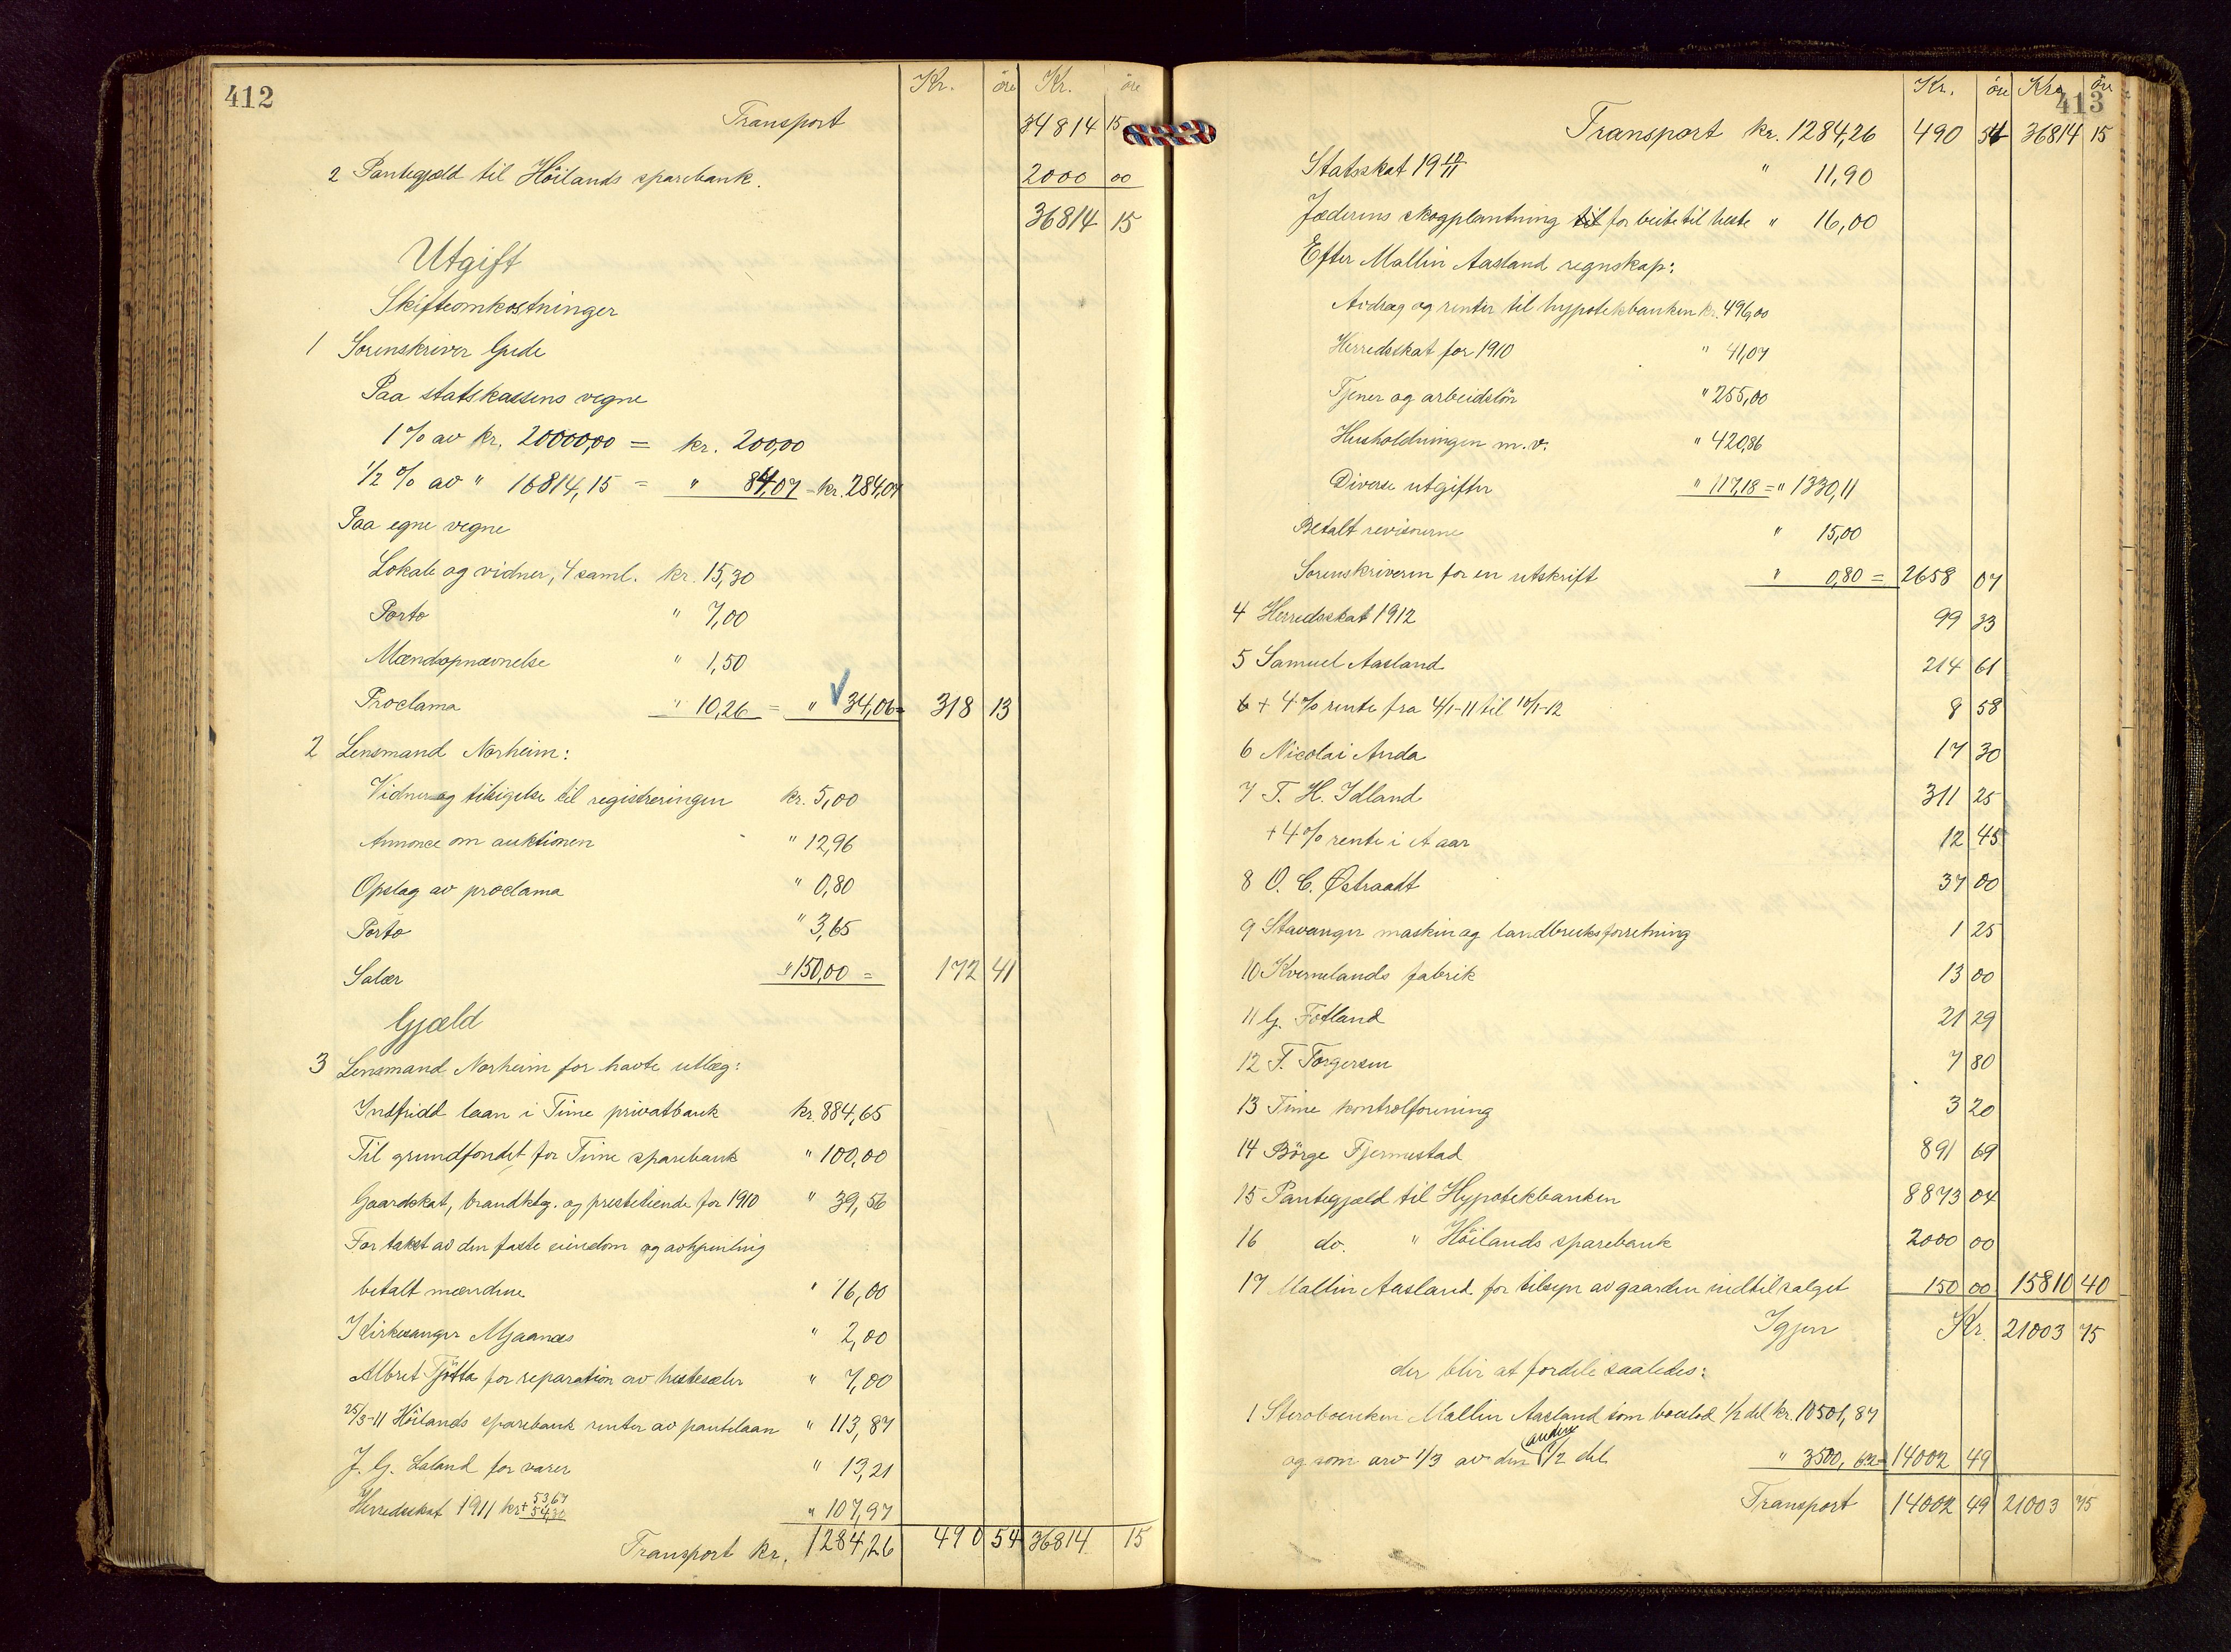 412
Kr. öre Kr. öre
Transport 34814 15
2 Pantegjæld til Höilands sparebank. 2000 00
36814 15
Utgift
Skifteomkostninger
1 Sorenskriver Gjede
Paa statskassens vegne
1 % av kr. 20000,00 = kr. 200,00
1/2 % av " 16814,15 = " 84,07 = kr. 284,07
Paa egne vegne
Lokale og vidner, 4 saml. kr. 15,30
Porto " 7,00
Mændsopnævnelse " 1,50
Proclama " 10,26 = " 34,06 = 318 13
2 Lensmand Norheim:
Vidner og tilsigelse til registreringen kr. 5,00
Annonce om auktionen " 12,96
Opslag av proclama " 0,80
Porto " 3,65
Salær " 150,00 = 172 41
Gjæld
3 Lensmand Norheim for havte utlæg:
Indfridd laan i Time privatbank kr. 884,65
Til grundfondet for Time sparebank " 100,00
Gaardskat, brandktg. og prestetiende for 1910 " 39,56
For takst av den faste eiendom og
betalt mændene " 16,00
Kirkesanger Mjaanes " 2,00
Albret Tjötta for reparation av hesteseler " 7,00
25/3-11 Höilands sparebank renter av pantelaan " 113,87
J. G. Laland for varer " 13,21
Herredsskat 1911 kr 53,67 + 54,30 " 107,97
Transport kr. 1284,26 490 54 36814 15
413
Kr. öre Kr. öre
Transport kr. 1284,26 490 54 36814 15
Statsskat 19 10/11 " 11,90
Jæderens skogplantning til for beite til heste " 16,00
Efter Mallin Aasland regnskap:
Avdrag og renter til hypotekbanken kr. 496,00
Herredsskat for 1910 " 41,07
Tjener og arbeidslön " 255,00
Husholdningen m.v. " 420,86
Diverse utgifter " 117,18 = " 1330,11
Betalt revisorerne " 15,00
Sorenskriveren for en utskrift " 0,80 = 2658 07
4 Herredsskat 1912 99 33
5 Samuel Aasland 214 61
6 + 4 % rente fra 4/1-11 til 10/1-12 8 58
6 Nicolai Anda 17 30
7 T. H. Idland 311 25
+ 4 % rente i et aar 12 45
8 O. C. Østraadt 37 00
9 Stavanger maskin og landbruksforretning 1 25
10 Kvernelands fabrik 13 00
11 G. Fotland 21 29
12 T. Torgersen 7 80
13 Time kontrolforening 3 20
14 Börge Fjermestad 891 69
15 Pantegjæld til Hypotekbanken 8873 04
16 do. " Höilands sparebank 2000 00
17 Mallin Aasland for tilsyn av gaarden indtil salget 150 00 15810 40
Igjen Kr. 21003 75
der blir at fordele saaledes:
1 Mallin Aasland som boeslod 1/2 del kr. 10501,87
og som arv 1/3 av den andre 1/2 del " 3500,62 = 14002 49
Transport 14002 49 21003 75